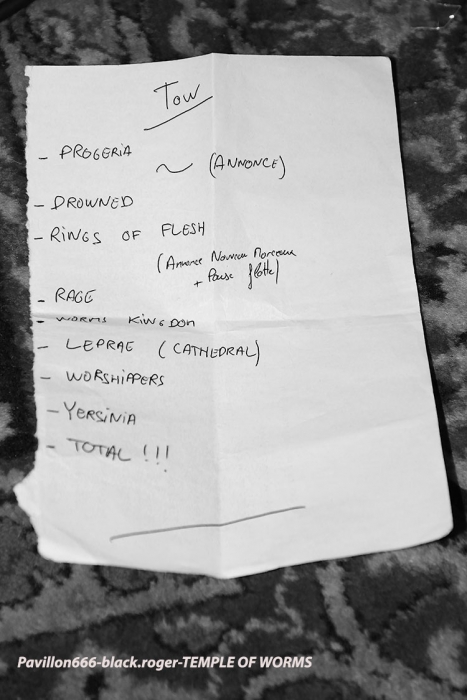 TOW
- PROGERIA
~ (ANNONCE)
- DROWNED
- RINGS OF FLESH
(Annonce Nouveau Morceau
+ Pause
- RAGE
- WORMS KINGDON
- LEPRAE (CATHEDRAL)
- WORSHIPPERS
- YERSINIA
- TOTAL !!!
Pavillon666-black.roger-TEMPLE OF WORMS